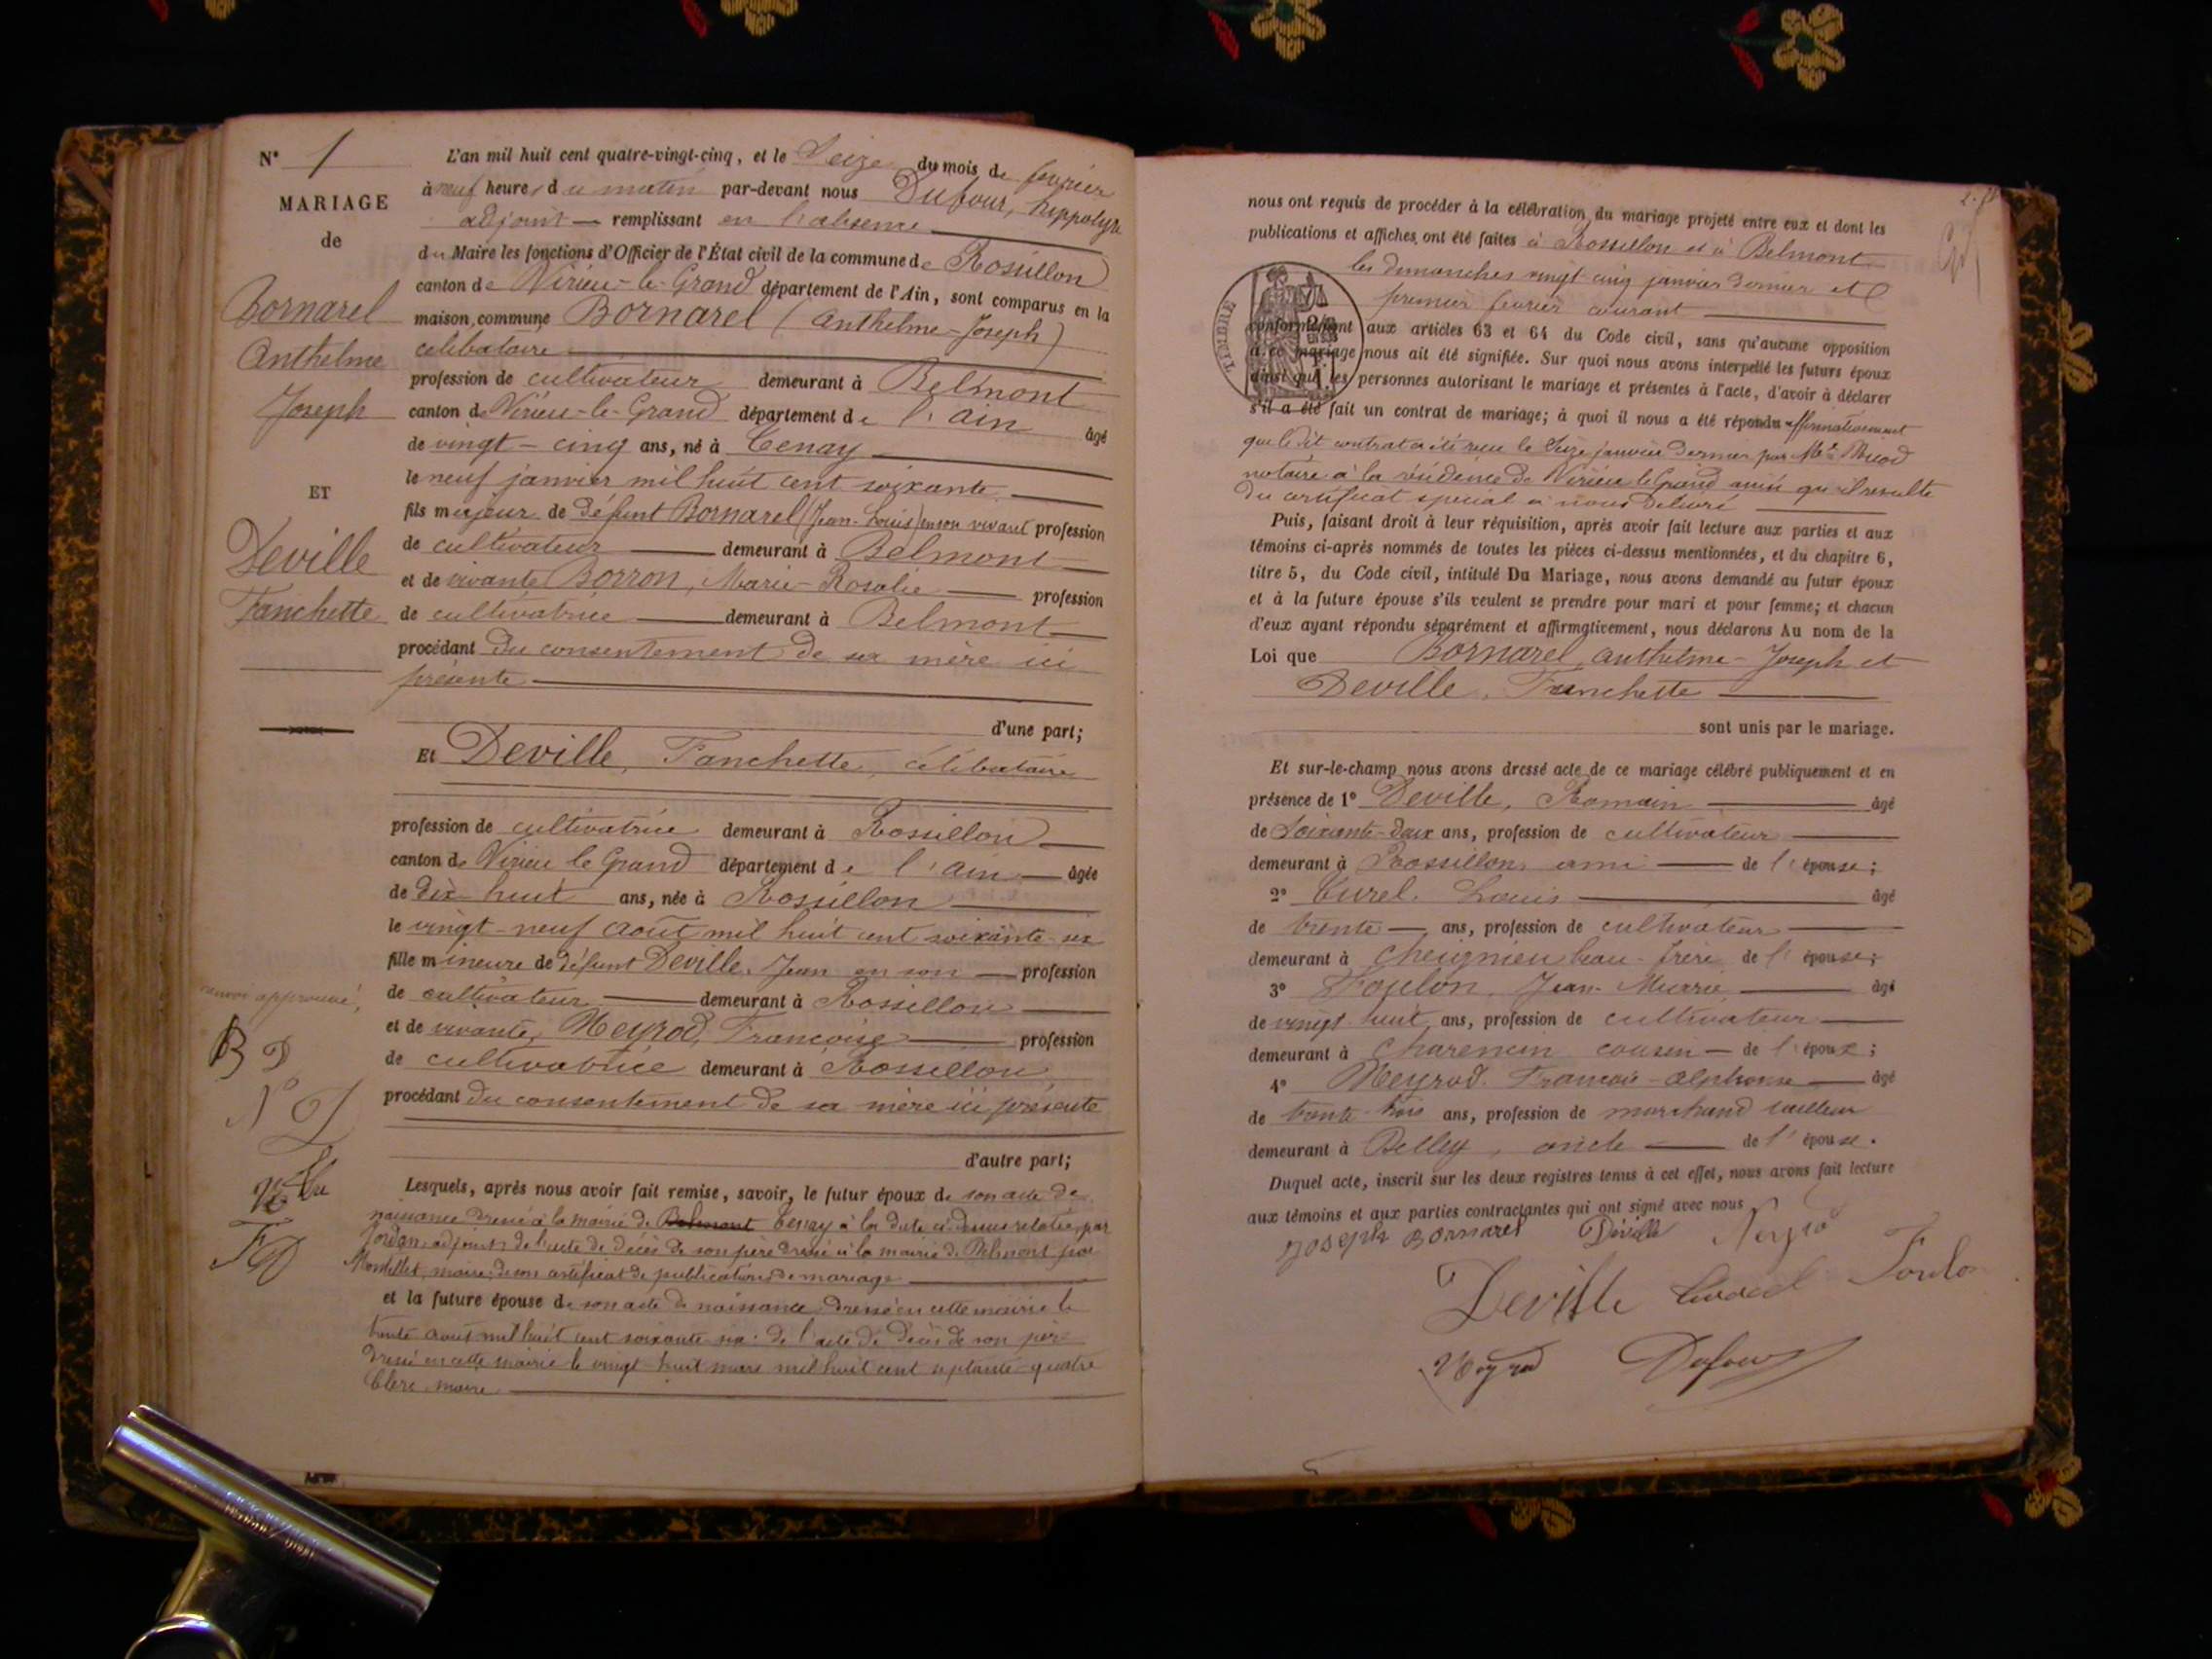 N° 1
MARIAGE
de
Bornarel
Anthelme
Joseph
ET
Deville
Fanchette
L'an mil huit cent quatre-vingt-cinq, et le Seize du mois de février
à neuf heures du matin par-devant nous Dufour, hippolyte
adjoint remplissant en l'absence
du Maire les fonctions d'Officier de l'État civil de la commune de Rossillon
canton de Virieu-le-Grand département de l'Ain, sont comparus en la
maison commune Bornarel (Anthelme-Joseph)
célibataire
profession de cultivateur demeurant à Belmont
canton de Virieu-le-Grand département de l'Ain âgé
de vingt-cinq ans, né à Tenay
le neuf janvier mil huit cent soixante
fils majeur de défunt Bornarel (Jean-Louis) en son vivant profession
de cultivateur demeurant à Belmont
et de vivante Borron, Marie-Rosalie profession
de cultivatrice demeurant à Belmont
procédant du consentement de sa mère ici
présente
d'une part;
Et Deville, Fanchette, célibataire
profession de cultivatrice demeurant à Rossillon
canton de Virieu le Grand département de l'Ain âgée
de dix huit ans, née à Rossillon
le vingt-neuf août mil huit cent soixante-six
fille mineure de défunt Deville, Jean en son profession
de cultivateur demeurant à Rossillon
et de vivante, Neyrod, Françoise profession
de cultivatrice demeurant à Rossillon
procédant du consentement de sa mère ici présente
d'autre part;
renvoi approuvé,
B D
N
FD
Lesquels, après nous avoir fait remise, savoir, le futur époux de son acte de
naissance dressé à la mairie de Belmont Tenay à la date ci-dessus relatée, par
Jordan, adjoint, de l'acte de décès de son père dressé à la mairie de Belmont par
maire, d'un certificat de publications de mariage
et la future épouse de son acte de naissance dressé en cette mairie le
trente août mil huit cent soixante six: de l'acte de décès de son père
dressé en cette mairie le vingt-huit mars mil huit cent septante-quatre
Clerc maire
nous ont requis de procéder à la célébration du mariage projeté entre eux et dont les
publications et affiches ont été faites à Rossillon et à Belmont
les dimanches vingt cinq janvier dernier et
premier février courant
TIMBRE
conformément aux articles 63 et 64 du Code civil, sans qu'aucune opposition
à ce mariage nous ait été signifiée. Sur quoi nous avons interpellé les futurs époux
ainsi que les personnes autorisant le mariage et présentes à l'acte, d'avoir à déclarer
s'il a été fait un contrat de mariage; à quoi il nous a été répondu affirmativement
que le dit contrat a été reçu le Seize janvier dernier par Me
notaire à la résidence de Virieu le Grand ainsi qu'il résulte
du certificat spécial à nous délivré
Puis, faisant droit à leur réquisition, après avoir fait lecture aux parties et aux
témoins ci-après nommés de toutes les pièces ci-dessus mentionnées, et du chapitre 6,
titre 5, du Code civil, intitulé Du Mariage, nous avons demandé au futur époux
et à la future épouse s'ils veulent se prendre pour mari et pour femme; et chacun
d'eux ayant répondu séparément et affirmativement, nous déclarons Au nom de la
Loi que Bornarel, Anthelme-Joseph et
Deville, Fanchette
sont unis par le mariage.
Et sur-le-champ nous avons dressé acte de ce mariage célébré publiquement et en
présence de 1° Deville, Romain âgé
de Soixante-deux ans, profession de cultivateur
demeurant à Rossillon, ami de l'épouse;
2° Curel, Louis âgé
de trente ans, profession de cultivateur
demeurant à Cheignieu beau-frère de l'épouse;
3° Foulon, Jean-Marie âgé
de vingt huit ans, profession de cultivateur
demeurant à Charencin cousin de l'époux;
4° Neyrod, François-Alphonse âgé
de trente trois ans, profession de marchand tailleur
demeurant à Belley, oncle de l'épouse.
Duquel acte, inscrit sur les deux registres tenus à cet effet, nous avons fait lecture
aux témoins et aux parties contractantes qui ont signé avec nous
Joseph Bornarel Déville Neyrod
Deville Foulon
Neyrod Dufour